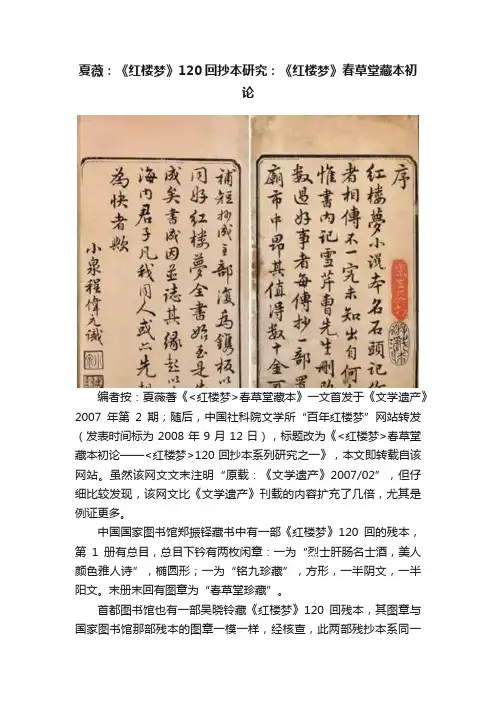 夏薇：《红楼梦》120回抄本研究：《红楼梦》春草堂藏本初
论
序
紅樓夢小説本名石頭記
者相傳不一究未知出自何
惟書內記雪芹曹先生刪
數過好事者每傳抄一部置
廟市中昂其值得數十金可
補短抄成全部復為鐫板以
同好紅樓夢全書始至是
成矣書成因並誌其緣起以
海內君子凡我同人或亦先
為快者歟
小泉程偉元識
编者按：夏薇著《<红楼梦>春草堂藏本》一文首发于《文学遗产》
2007年第2期；随后，中国社科院文学所“百年红楼梦”网站转发
（发表时间标为2008年9月12日），标题改为《<红楼梦>春草堂
藏本初论——<红楼梦>120回抄本系列研究之一》，本文即转载自该
网站。虽然该网文文末注明“原载：《文学遗产》2007/02”，但仔
细比较发现，该网文比《文学遗产》刊载的内容扩充了几倍，尤其是
例证更多。
中国国家图书馆郑振铎藏书中有一部《红楼梦》120回的残本，
第1册有总目，总目下钤有两枚闲章：一为“烈士肝肠名士酒，美人
颜色雅人诗”，椭圆形；一为“铭九珍藏”，方形，一半阴文，一半
阳文。末册末回有图章为“春草堂珍藏”。
首都图书馆也有一部吴晓铃藏《红楼梦》120回残本，其图章与
国家图书馆那部残本的图章一模一样，经核查，此两部残抄本系同一